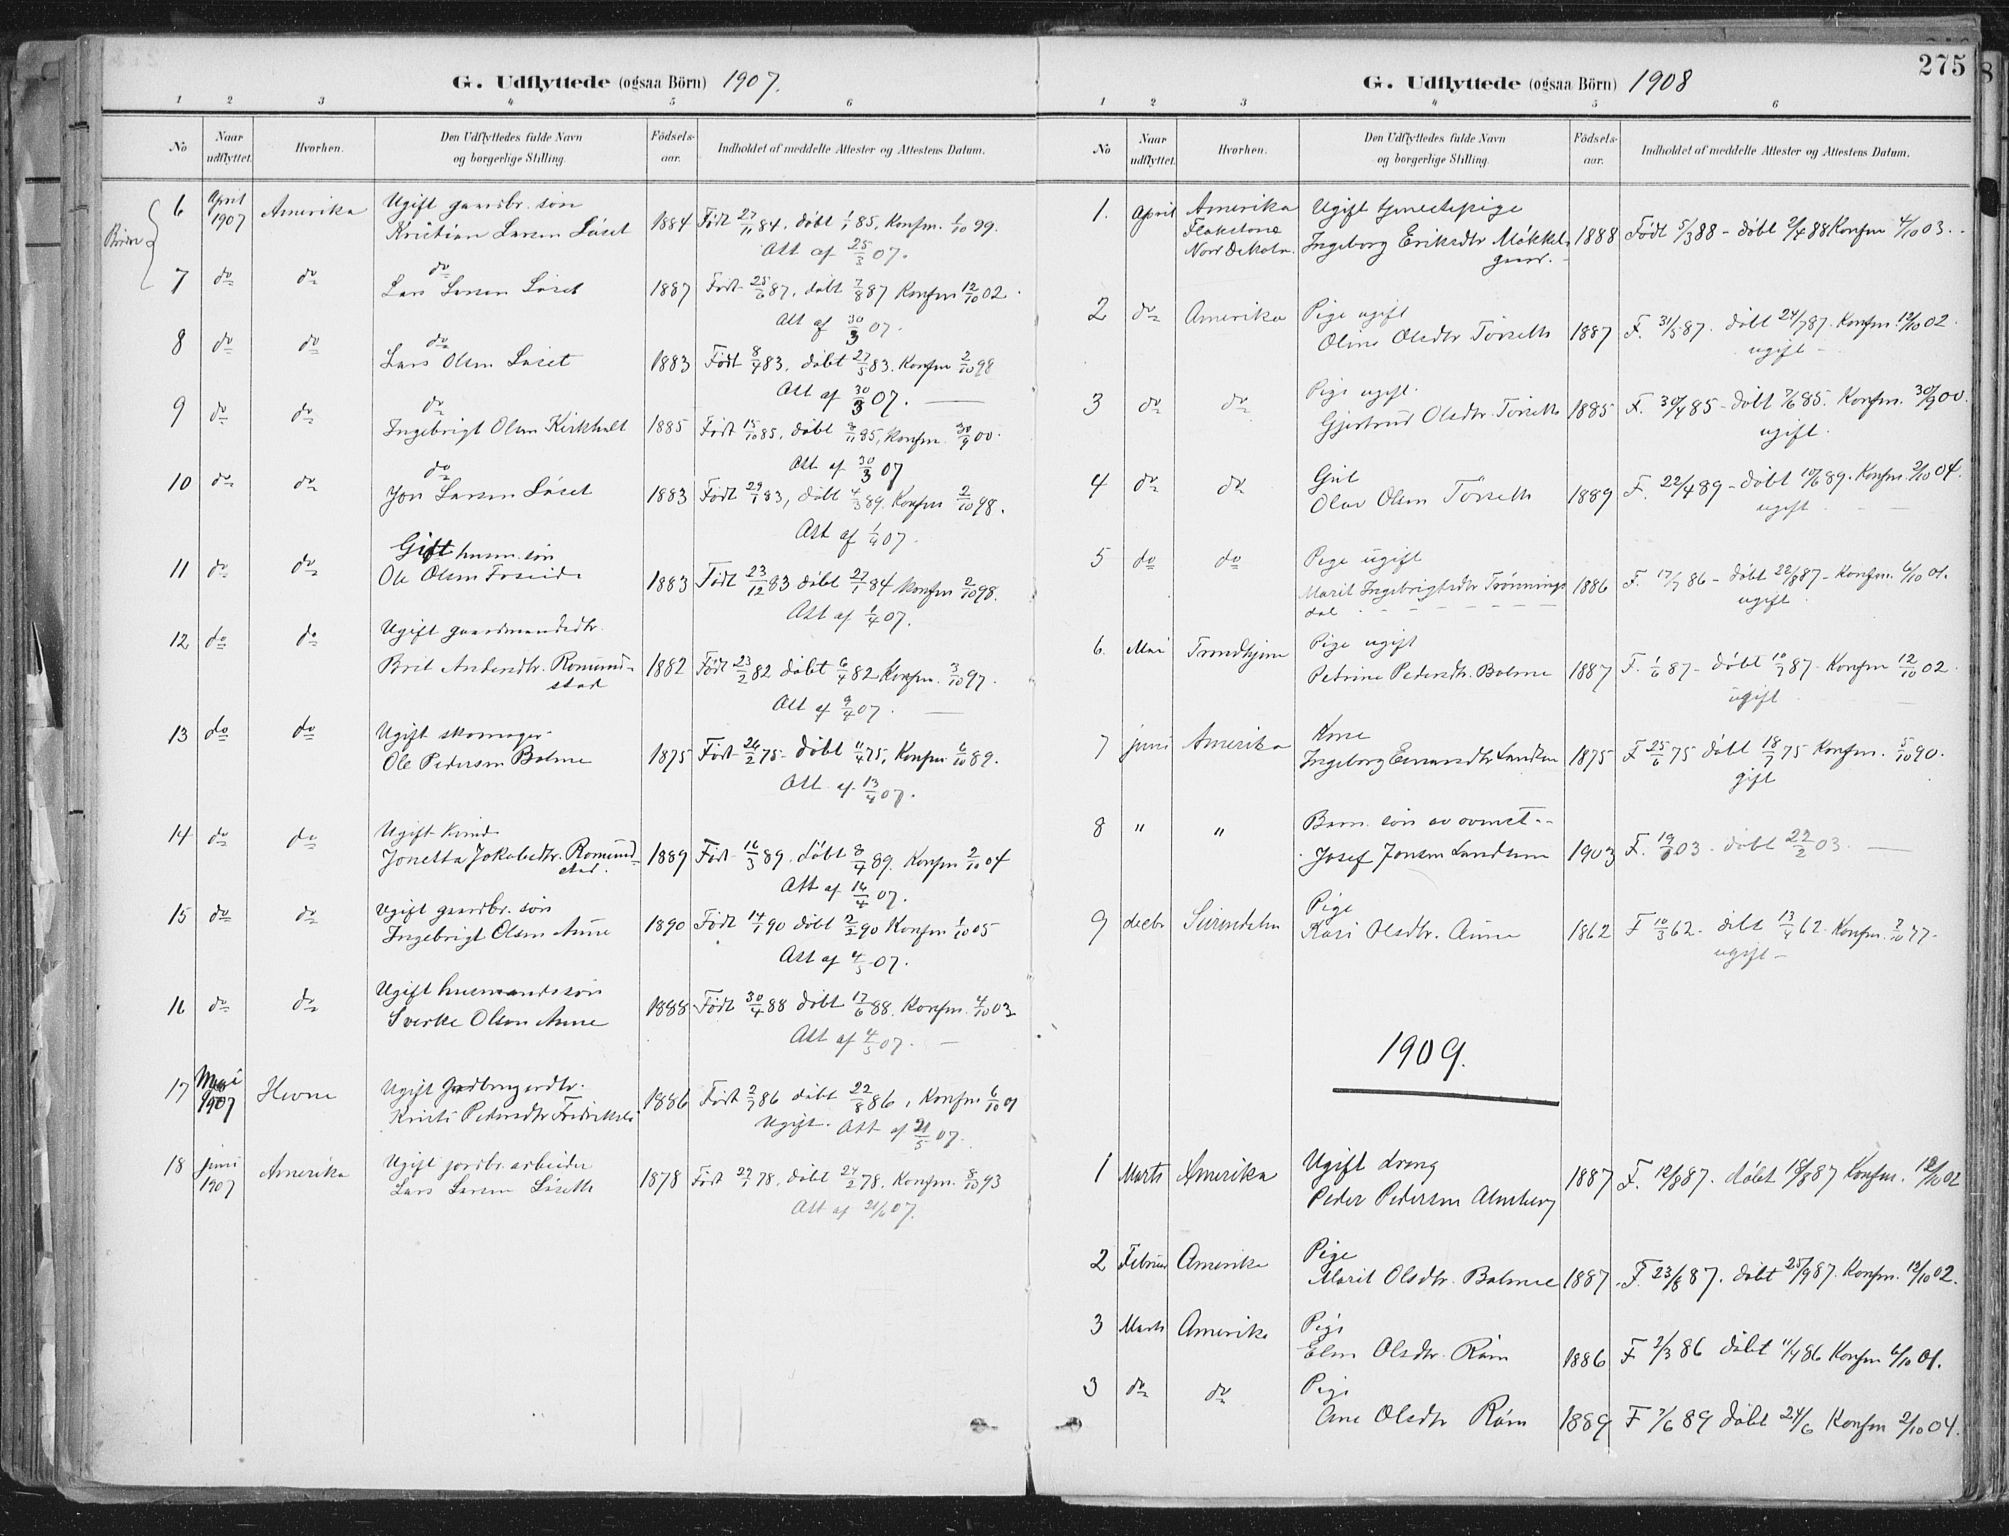 G. Udflyttede (ogsaa Börn) 1907.
1 2 3 4 5 6
No
Naar udflyttet.
Hvorhen.
Den Udflyttedes fulde Navn
og borgerlige Stilling.
Födsels-
aar.
Indholdet af meddelte Attester og Attestens Datum.
6 April 1907 Amerika Ugift gaardbr. søn
Kristian Larsen Løset 1884 Født 27/11 84, døbt 1/1 85, Konfm. 1/10 99.
Att af 25/3 07.
7 do do do
Lars Larsen Løset 1887 Født 25/6 87, døbt 7/8 87 Konfm 12/10 02.
Att af 30/3 07.
8 do do do
Lars Olsen Løset 1883 Født 8/4 83, døbt 27/5 83. Konfm 2/10 98
Att af 30/3 07.
9 do do do
Ingebrigt Olsen Kirkholt 1885 Født 15/10 85, døbt 8/11 85, Konfm. 30/9 00.
Att af 30/3 07
10 do do do
Jon Larsen Løset 1883 Født 29/1 83, døbt 4/3 89. Konfm 2/10 98.
Att af 1/4 07.
11 do do Gift husm. søn
Ole Olsen 1883 Født 23/12 83 døbt 27/1 84 Konfm 2/10 98.
Att af 1/4 07.
12 do do Ugift gaardmandsdtr.
Brit Andersdtr. Romund-
stad 1882 Født 23/2 82 døbt 6/4 82 Konfm. 3/10 97.
Att af 9/4 07.
13 do do Ugift skomager
Ole Pedersen Bolme 1875 Født 26/2 75. Døbt 11/4 75, Konfm 6/10 89.
Att af 13/4 07.
14 do do Ugift Kvinde
Jonetta Jakobsdtr. Romund-
stad. 1889 Født 16/3 89. døbt 8/4 89. Konfm 2/10 04
Att af 16/4 07.
15 do do Ugift gaardbr. søn
Ingebrigt Olsen Aune 1890 Født 14/1 90 døbt 2/2 90 Konfm 1/10 05
Att af 4/5 07.
16 do do Ugift husmandssøn
Sverke Olsen Aune 1888 Født 30/4 88 døbt 17/6 88. Konfm. 4/10 03
Att af 4/5 07.
17 Mai 1907 Hevne Ugift
Pedersdtr 1886 Født 2/7 86 døbt 22/8 86, Konfm 6/10 01
Ugift. Att af 21/5 07.
18 Juni 1907 Amerika Ugift jordbr. arbeider
Lars Larsen Løseth 1878 Født 27/1 78, døbt 24/2 78, Konfm. 8/10 93
Att af 21/6 07.
275
G. Udflyttede (ogsaa Börn) 1908
1 2 3 4 5 6
No
Naar udflyttet.
Hvorhen.
Den Udflyttedes fulde Navn
og borgerlige Stilling.
Födsels-
aar.
Indholdet af meddelte Attester og Attestens Datum.
1. April Amerika Ugift tjenestepige
Nord Dekota. Ingeborg Eriksdtr Møkkel-
gaard. 1888 Født 5/3 88 - døbt 2/4 88 Konfm 4/10 03.
2 do Amerika Pige ugift
Oline Olsdtr Tørseth 1887 F. 31/5 87. døbt 24/7 87. Konfm. 12/10 02.
ugift
3 do do Pige ugift.
Gjertrud Olsdtr. Tørseth 1885 F. 30/4 85 - døbt 7/6 85. Konfm. 30/9 00.
ugift.
4 do do Gut
Olav Olsen Tørseth 1889 F. 22/4 89 - døbt 10/6 89. Konfm. 2/10 04.
ugift
5 do do Pige ugift
Marit Ingebrigtsdtr Trønnings
dal 1886 F. 17/7 86 - døbt 22/8 87 - Konfm. 6/10 01.
ugift
6. Mai Trondhjem Pige ugift
Petrine Pedersdtr. Bolme 1887 F. 1/6 87 - døbt 10/7 87 - Konfm 12/10 02.
ugift
7 juni Amerika Kone
Ingeborg Einarsdtr Landsem 1875 F 25/6 75 døbt 18/7 75 Konfm. 5/10 90.
gift
8 " " Barn. søn av ovnevt.
Josef Jonsen Landsem 1903 F. 03. døbt 22/2 03.
9 decbr Surendalen Pige
Kari Olsdtr. Aune 1862 F 10/3 62. døbt 13/4 62. Konfm. 7/10 77.
ugift
1909.
1 Marts Amerika Ugift dreng
Peder Pedersen Almberg 1887 F. 12/8 87. døbt 18/8 87 Konfm. 12/10 02
2 Februar Amerika Pige
Marit Olsdtr. Bolme 1887. F. 23/8 87. døbt 25/9 87. Konfm. 12/10 02.
3 Marts Amerika Pige
Elen Olsdtr. Røen 1886 F 2/3 86 døbt 11/4 86 Konfm 6/10 01.
3 do do Pige
Ane Olsdtr Røen 1889 F 7/6 89 døbt 24/6 Konfm 2/10 04.